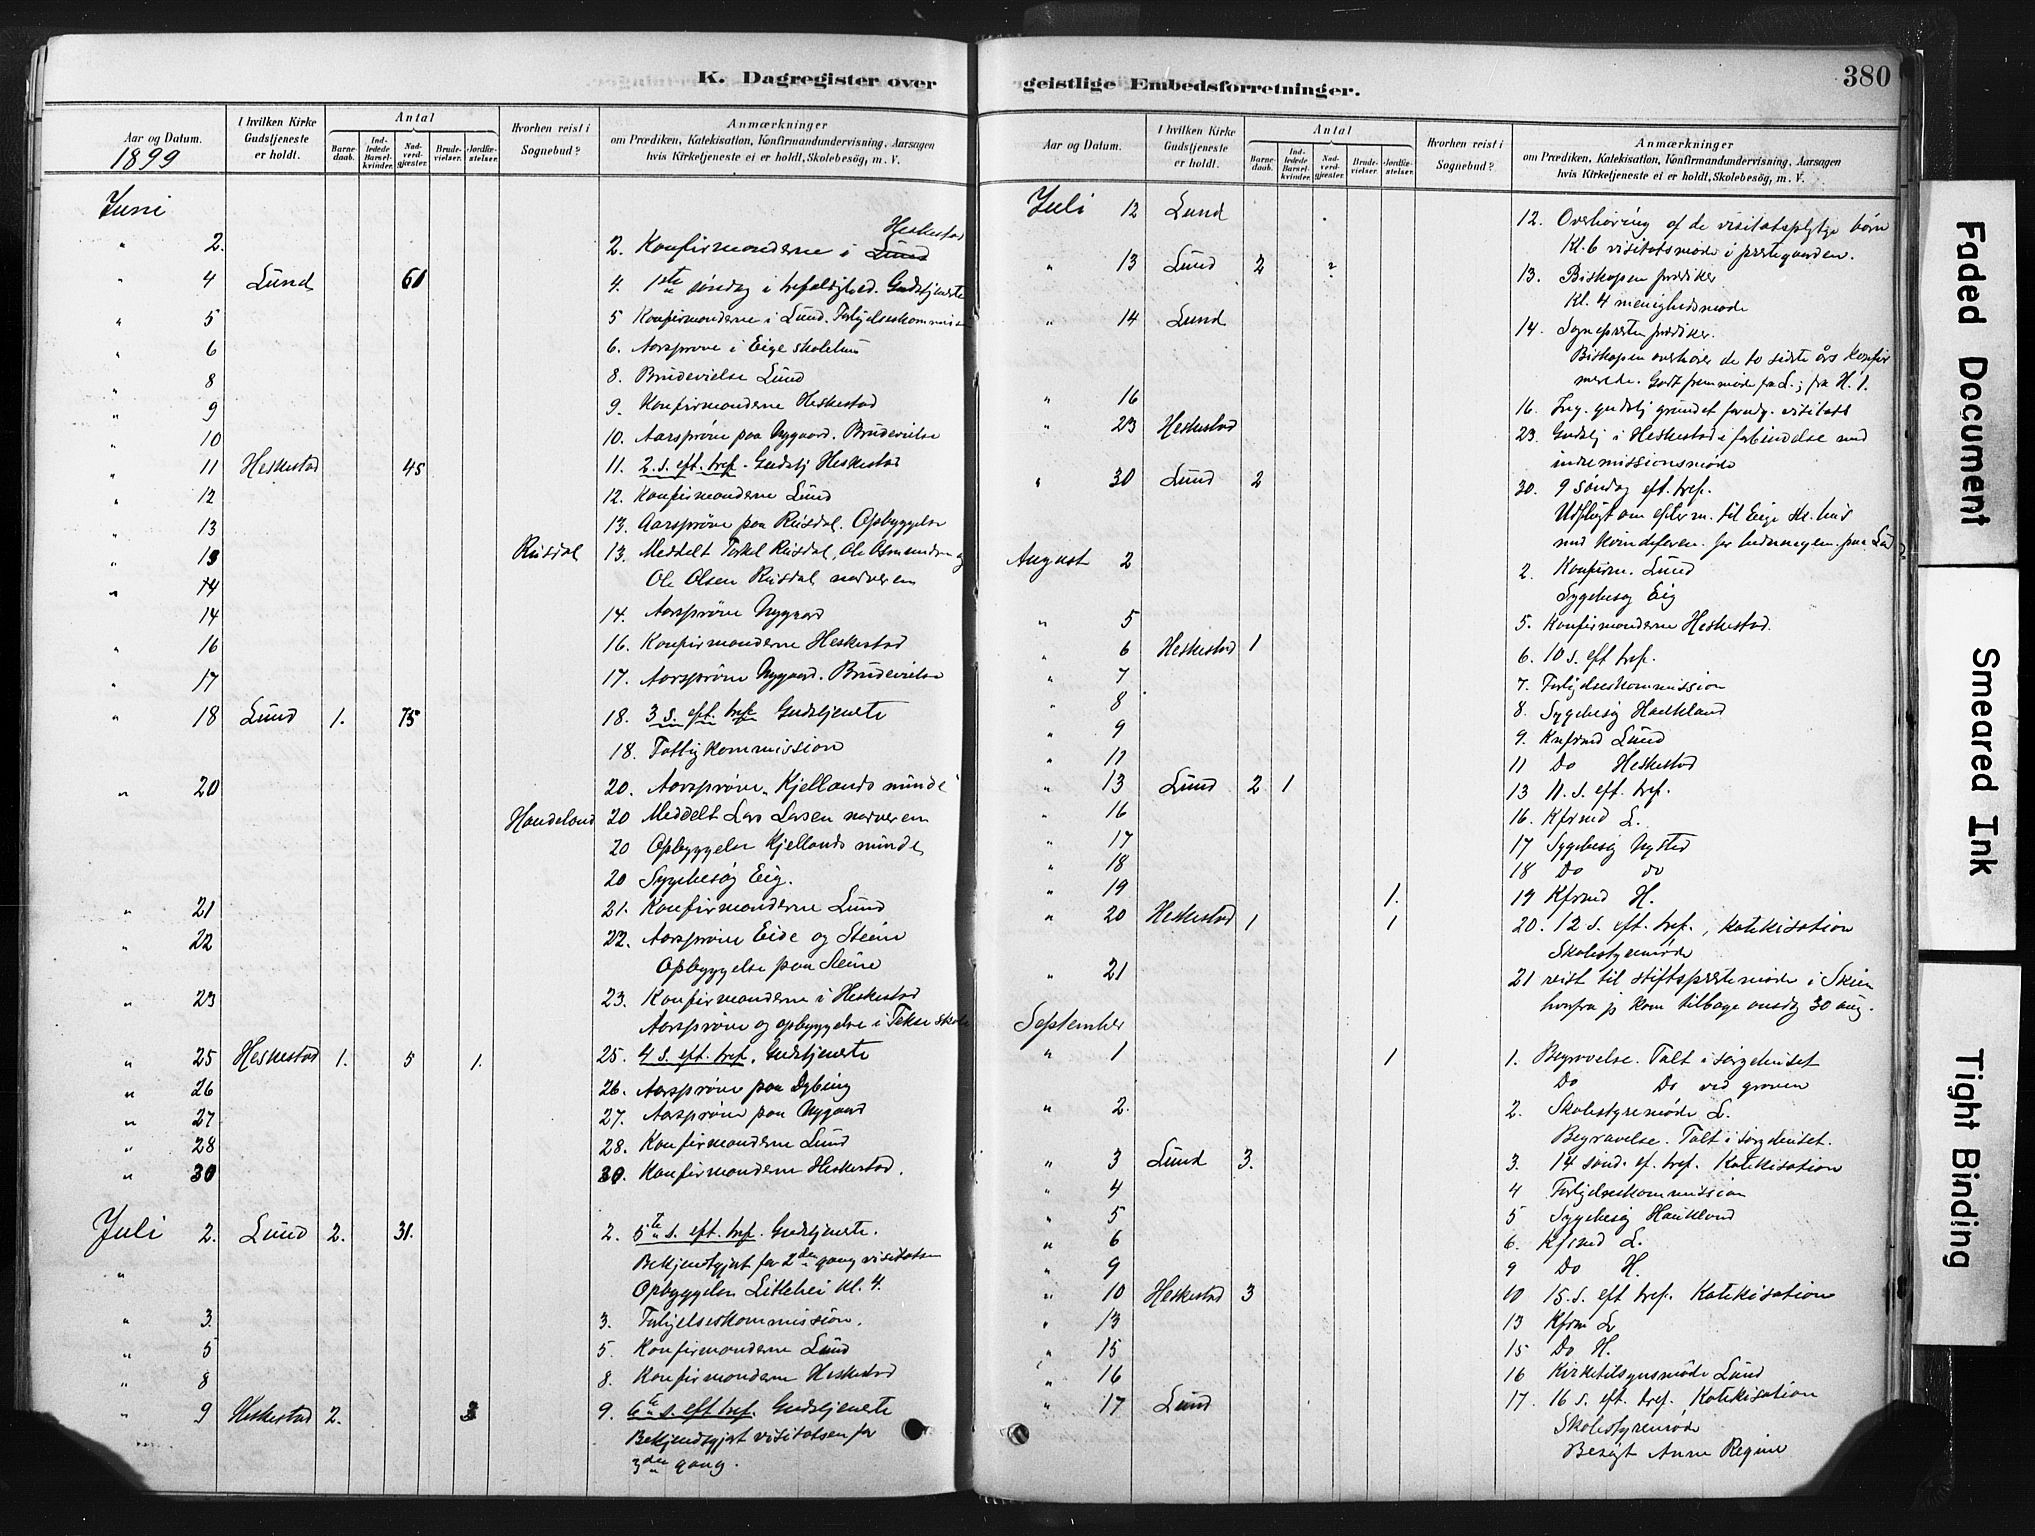 K. Dagregister over
Aar og Datum.
1899
I hvilken Kirke Gudstjeneste er holdt.
Antal
Barnedaab.
Indledede Barselkvinder.
Nadverdgjester.
Brudevielser.
Jordfæstelser.
Hvorhen reist i Sognebud?
Anmærkninger
om Prædiken, Katekisation, Konfirmandundervisning, Aarsagen
hvis Kirketjeneste ei er holdt, Skolebesøg, m. V.
Juni
Heskestad
" 2. 2. Konfirmanderne i Lund
" 4 Lund 61 4. 1ste søndag i trefoldighed. Gudstjeneste
" 5 5 Konfirmanderne i Lund. Forligelseskommission
" 6 6. Aarsprøve i Eige skolehus
" 8 8. Brudevielse Lund
" 9 9. Konfirmanderne Heskestad
" 10 10. Aarsprøve paa Nygaard. Brudevielse
" 11 Heskestad 45 11. 2. s. eft. tref. Gudstj Heskestad
" 12 12. Konfirmanderne Lund
" 13 13. Aarsprøve paa Rusdal. Opbyggelse
" 13 Rusdal 13. Meddelt Torkel Rusdal, Ole Osmundsen og
" 14 Ole Olsen Rusdal nadveren
14 14. Aarsprøve Nygaard
" 16 16. Konfirmanderne Heskestad
" 17 17. Aarsprøve Nygaard. Brudevielse
" 18 Lund 1. 75 18. 3 s. eft. tref. Gudstjeneste
18. Fattigkommission
" 20 20. Aarsprøve. Kjellands minde
Haudeland 20 Meddelt Lars Larsen nadveren
20 Opbyggelse Kjellands minde
20 Sygebesøg Eig.
" 21 21. Konfirmanderne Lund
" 22 22. Aarsprøve Eide og Steine
Opbyggelse paa Steine
" 23 23. Konfirmanderne i Heskestad
Aarsprøve og opbyggelse i Tekse skole
" 25 Heskestad 1. 5 1. 25. 4 s. eft. tref. Gudstjeneste
" 26 26. Aarsprøve paa Dybing
" 27 27. Aarsprøve paa Nygaard
" 28 28. Konfirmanderne Lund
" 30 30. Konfirmanderne Heskestad.
Juli 2. Lund 2. 31. 2. 5te s. eft. tref. Gudstjeneste.
" Bekjendtgjort for 2den gang visitatsen
Opbyggelse Litlehei kl. 4.
" 3. 3. Forligelseskommission.
" 5 5. Konfirmanderne Lund
" 8 8. Konfirmanderne Heskestad
" 9 Heskestad 2. 3 9. 6te s. eft tref. Gudstjeneste
Bekjendtgjort visitatsen for
3die gang.
geistlige Embedsforretninger.
380
Aar og Datum.
I hvilken Kirke Gudstjeneste er holdt.
Antal
Barnedaab.
Indledede Barselkvinder.
Nadverdgjester.
Brudevielser.
Jordfæstelser.
Hvorhen reist i Sognebud?
Anmærkninger
om Prædiken, Katekisation, Konfirmandundervisning, Aarsagen
hvis Kirketjeneste ei er holdt, Skolebesøg, m. V.
Juli 12 Lund 12. Overhøring af de visitatspligtige børn
Kl. 6 visitatsmøde i prestegaarden.
" 13 Lund 2 2 13. Biskopen prædiker
Kl. 4 menighedsmøde
" 14 Lund 14. Sognepresten prædiker.
Biskopen overhører de to sidste års konfir
merede. Godt fremmøde fra L.; fra H. 1.
" 16 16. Ing. gudstj grundet foreg. visitats
" 23 Heskestad 23. Gudstj i Heskestad i forbindelse med
indremissionsmøde
" 30 Lund 2 30. 9 søndag eft. tref.
Udflugt om efterm. til Eige sk. hus
med kvindeforen. for hedningem. paa Lund
August 2 2. Konfirm. Lund
Sygebesøg Eig
" 5 5. Konfirmanderne Heskestad.
" 6 Heskestad 1 6. 10 s. eft tref.
" 7 7. Forligelseskommission
" 8 8. Sygebesøg Haukland
" 9 9. Knfrmd Lund
" 11 11 Do Heskestad
" 13 Lund 2 1 13 11. s. eft. tref.
" 16 16. Kfrmd L.
" 17 17 Sygebesøg Nysted
" 18 18 Do do
" 19 1. 19 Kfrmd H.
" 20 Heskestad 1 1 20. 12 s. eft. tref., Katekisation
Skolestyremøde
" 21 21 reist til stiftsprestemøde i Skien
hvorfra jeg kom tilbage onsdag 30 aug.
September
" 1 1 1. Begravelse. Talt i sørgehuset
Do Do ved graven
" 2. 2. Skolestyremøde L.
Begravelse. Talt i sørgehuset.
" 3 Lund 3. 3. 14 sønd. ef. tref. Katekisation
" 4 4 Forligelseskommission
" 5 5 Sygebesøg Haukland
" 6 6. Kfrmd L.
" 9 9 Do H.
" 10 Heskestad 3 10 15. s. eft tref. Katekisation
" 13 13 Kfrm L
" 15 15 Do H.
" 16 16 Kirketilsynsmøde Lund
" 17 Lund 17. 16 s. eft. tref. Katekisation
Skolestyremøde
Besøgt Anne Regine
Faded Document
Smeared Ink
Tight Binding